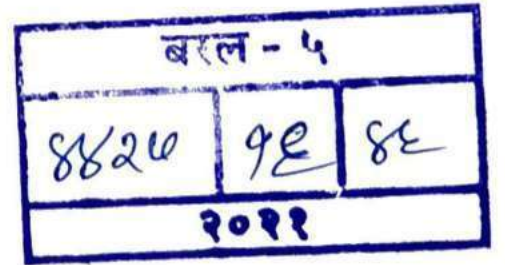 बरल - ५
४४२७ १९ ४६
२०२२